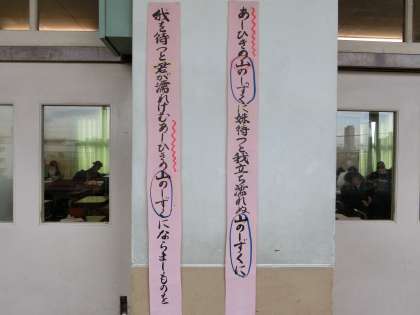 あしひきの山のしずくに妹待つと我立ち濡れぬ山のしずくに
我を待つと君が濡れけむあしひきの山のしずくにならましものを